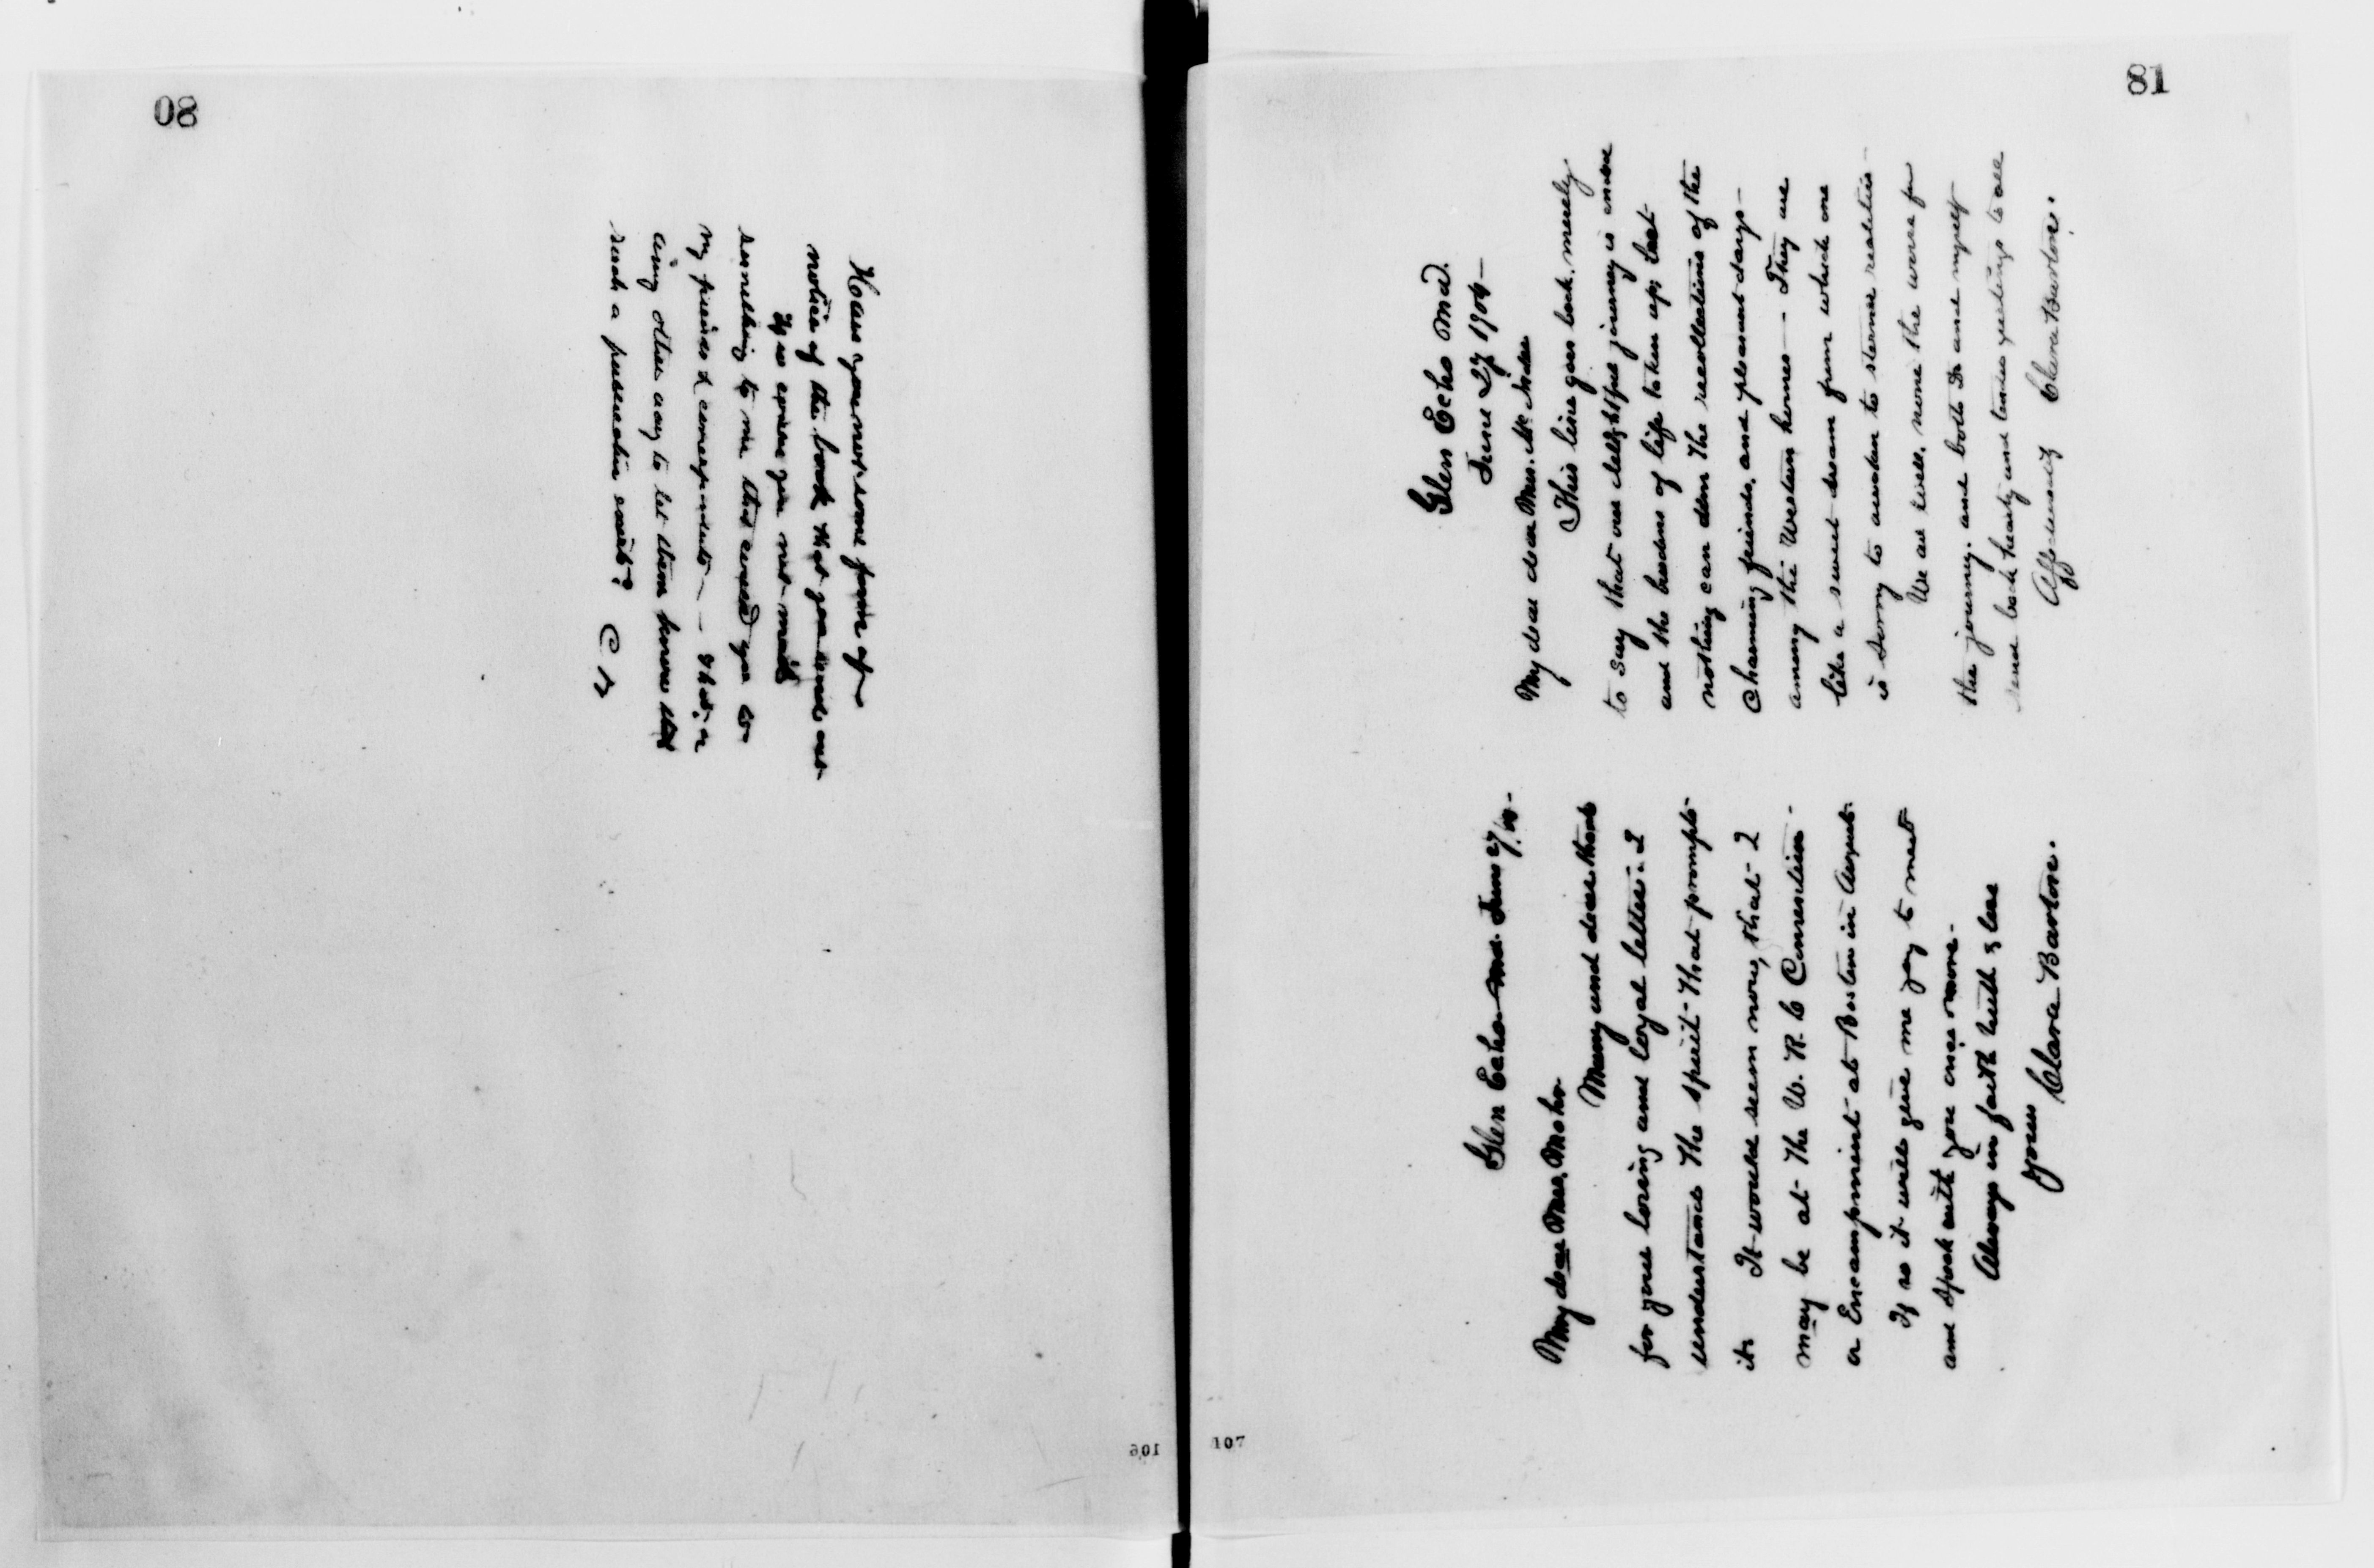 80
Have you not some form of
notice of the book that you can
If so could you not mail
something to me that could go to
my friends & correspondents — or is
any other way to let them know that
such a publication exists?
C B
106
81
Glen Echo Md.
June 27 1904—
My dear Mrs.
This line goes back merely
to say that our delightful journey is over
and the burdens of life taken up; but
nothing can dim the recollections of the
charming friends, and pleasant days—
among the Western homes — They are
like a sweet dream from which one
is sorry to awaken to sterner realities—
We are well, none the worse for
the journey, and both Dr and myself
send back hearty and tender greetings to all
Affectionately Clara Barton.
Glen Echo Md. June 27/04-
My dear Mrs. Mohr
Many and dear thanks
for your loving and loyal letter. I
understand the spirit that prompts
it. It would seem now, that I
may be at the W. R. C Convention-
or Encampment at Boston in August
If so it will give me joy to meet
and speak with you once more-
Always in faith truth & love
Yours Clara Barton.
107